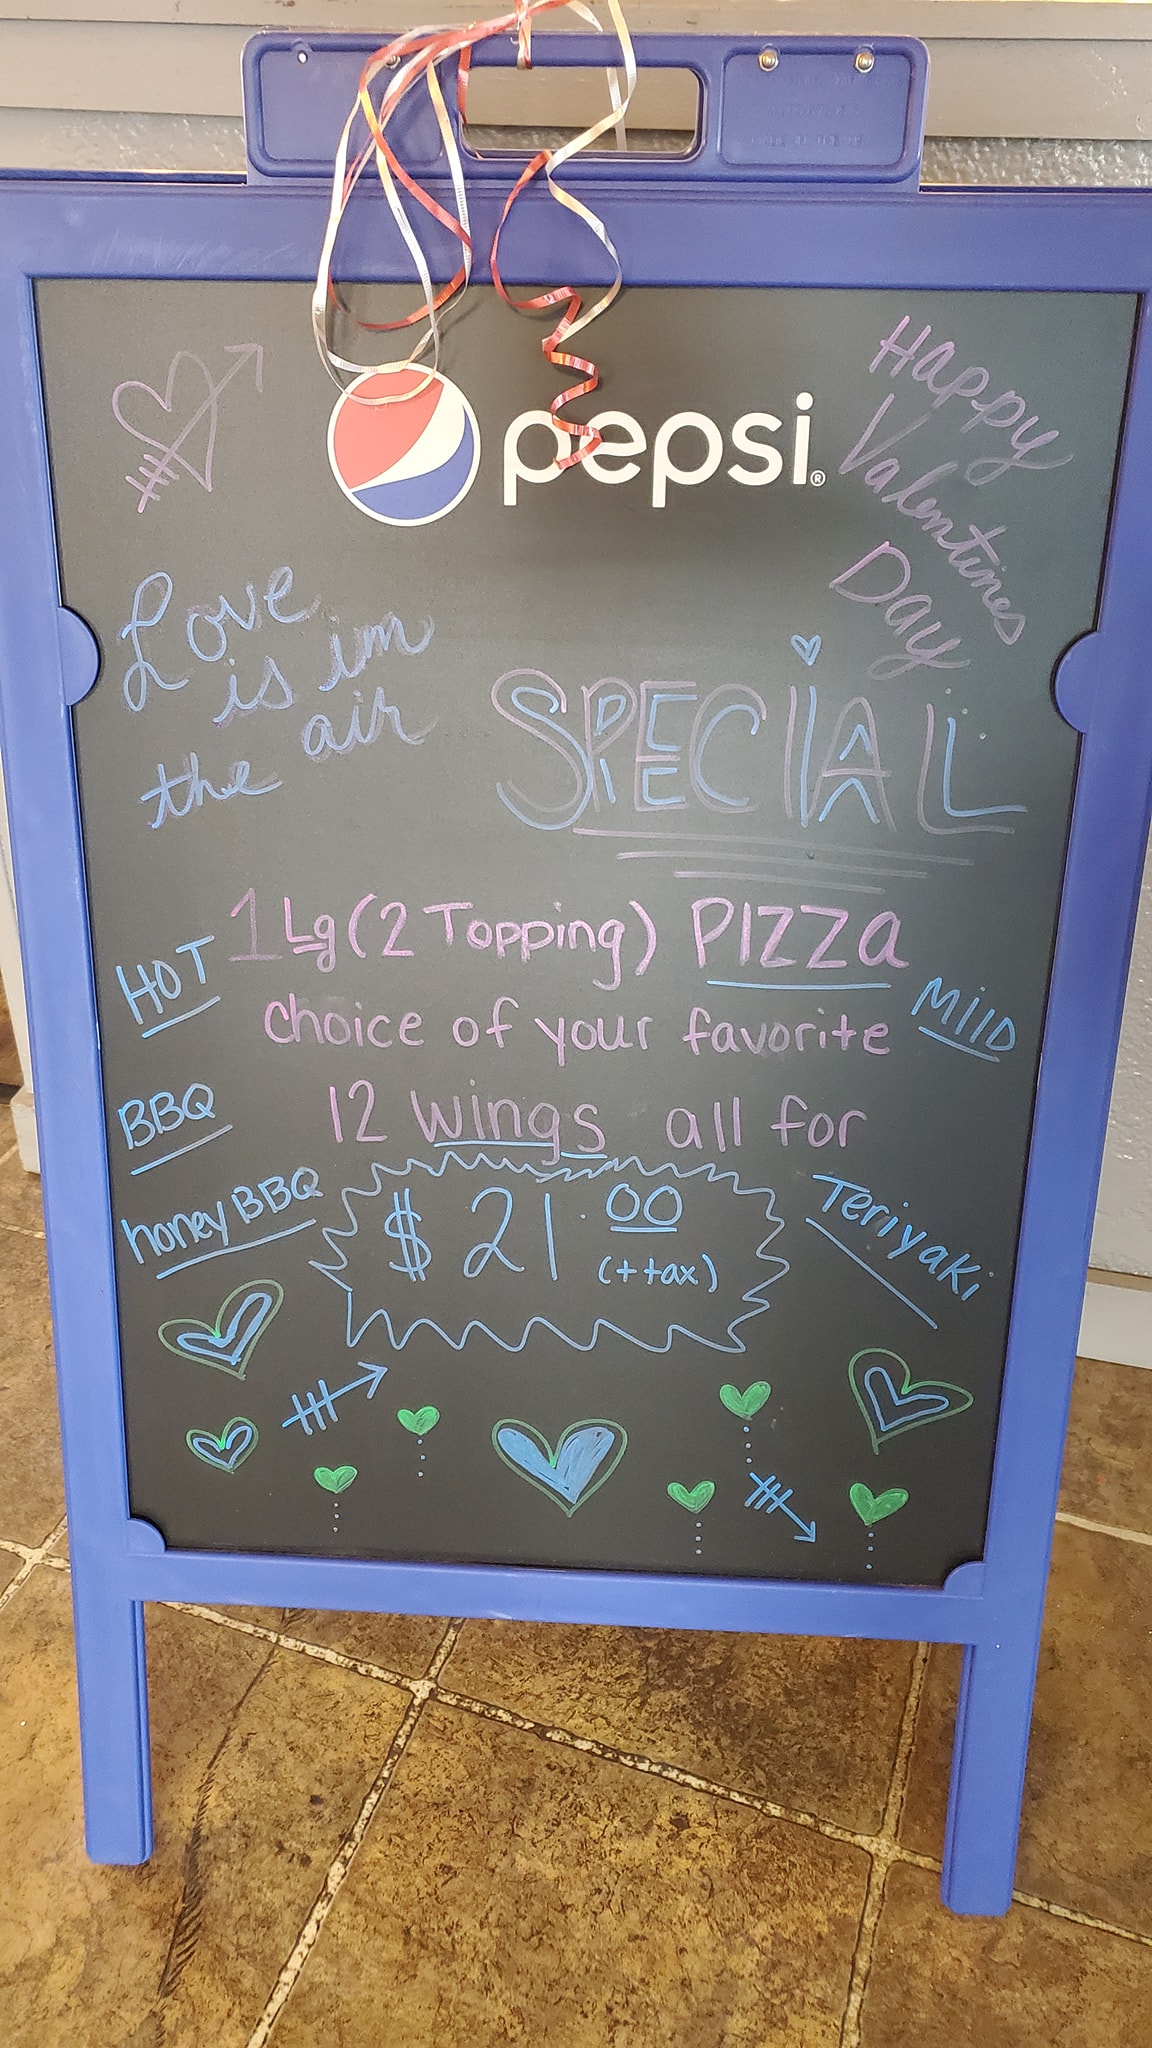 pepsi®
Happy
Valentines
Day
Love
is im
the air
SPECIAL
1 Lg (2 Topping) PIZZA
HOT
MilD
choice of your favorite
BBQ
12 wings all for
honey BBQ
$21.00
(+tax)
Teriyaki